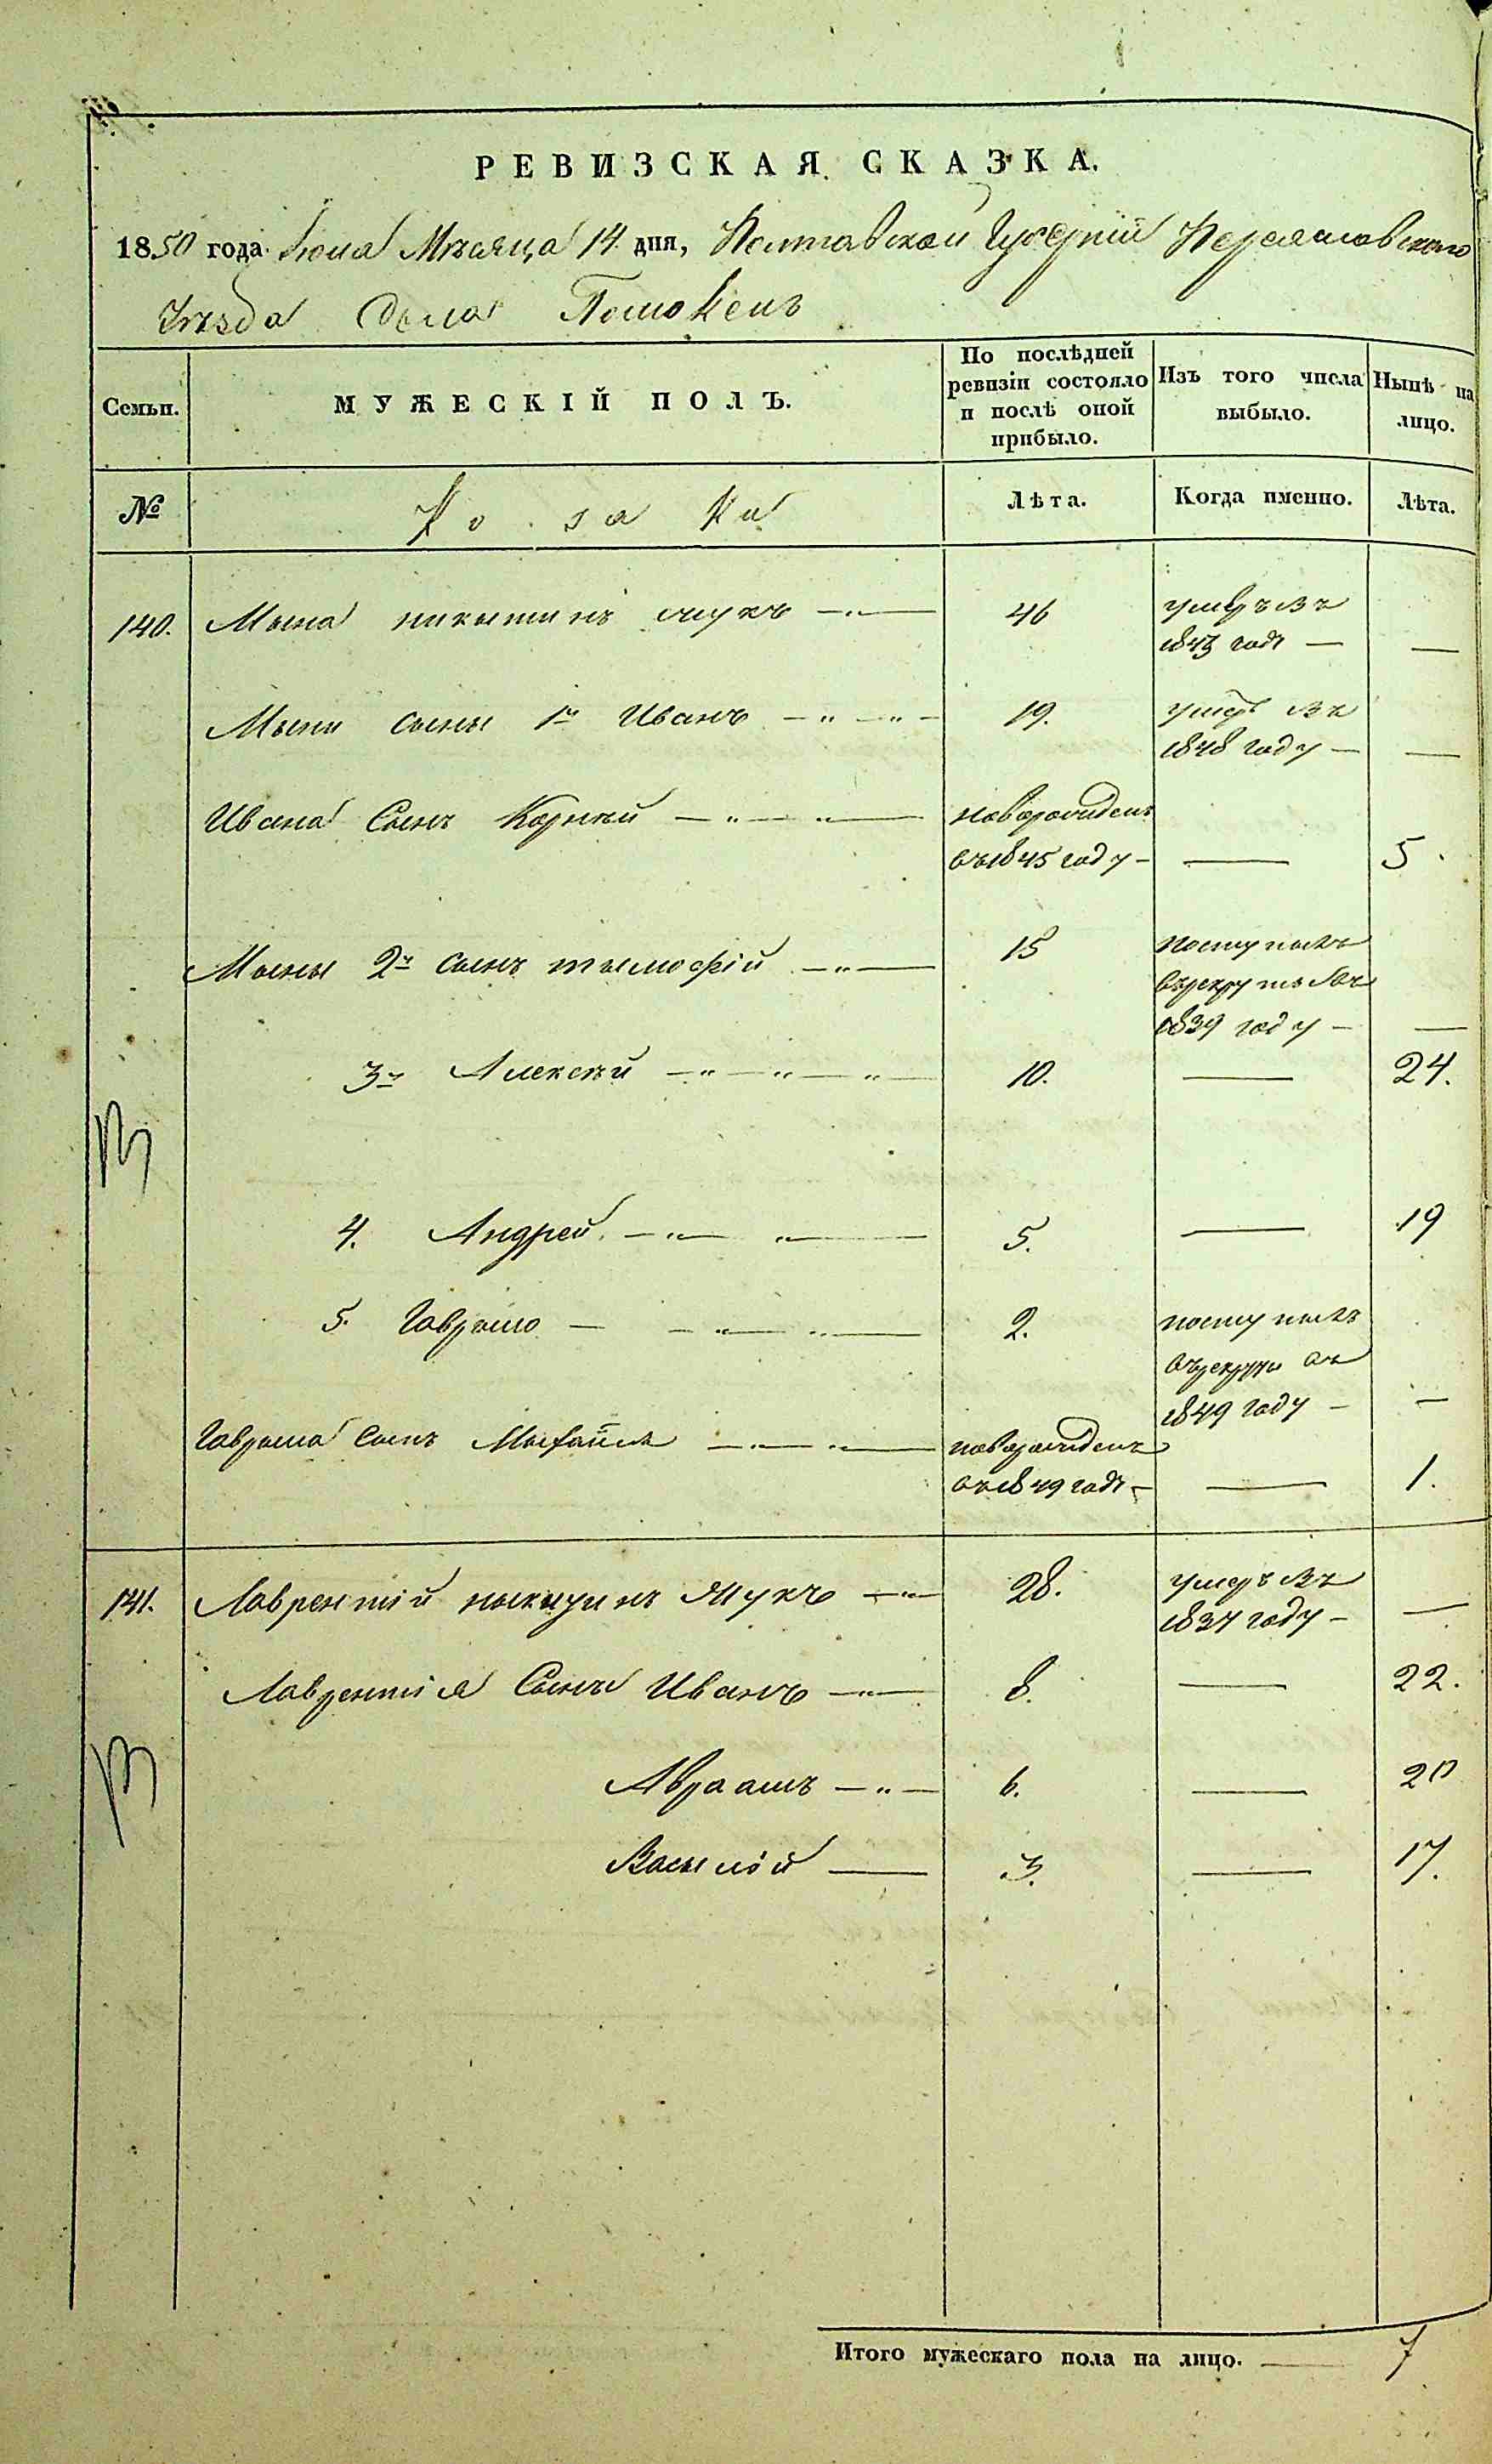 РЕВИЗСКАЯ СКАЗКА.
1850 года Іюня Мѣсяца 14 дня, Полтавской Губерніи Переяславского
Уѣзда Села Помоклъ
Семьи. МУЖЕСКІЙ ПОЛЪ. По послѣдней ревизіи состояло и послѣ оной прибыло. Изъ того числа выбыло. Нынѣ на лицо.
№ Козаки Лѣта. Когда именно. Лѣта.
140. Мына никитинъ жукъ 46 умеръ въ
1843 годе —
Мыны сыны 1й Иванъ 19. умеръ въ
1848 году —
Ивана Сынъ Корнѣй новорожденъ
въ 1845 году — 5
Мыны 2й сынъ тымофій 15 поступылъ
въ рекруты въ
1839 году —
3й Алексѣй 10. — 24.
4. Андрей 5. — 19
5. Гаврыло 2. поступылъ
въ рекруты въ
1849 году —
Гаврыла Сынъ Мыхайло новорожденъ
въ 1849 годе — 1.
141. Лаврентій ныкитинъ Жукъ 28. умеръ въ
1837 году —
Лаврентія Сыны Иванъ 8. — 22.
Авраамъ 6. — 20
Васылій 3. — 17.
Итого мужескаго пола на лицо. — 7